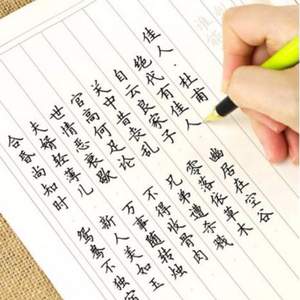 佳人·杜甫
绝代有佳人 幽居在空谷
自云良家子 零落依草木
关中昔丧乱 兄弟遭杀戮
官高何足论 不得收骨肉
世情恶衰歇 万事随转烛
夫婿轻薄儿 新人美如玉
合昏尚知时 鸳鸯不独宿